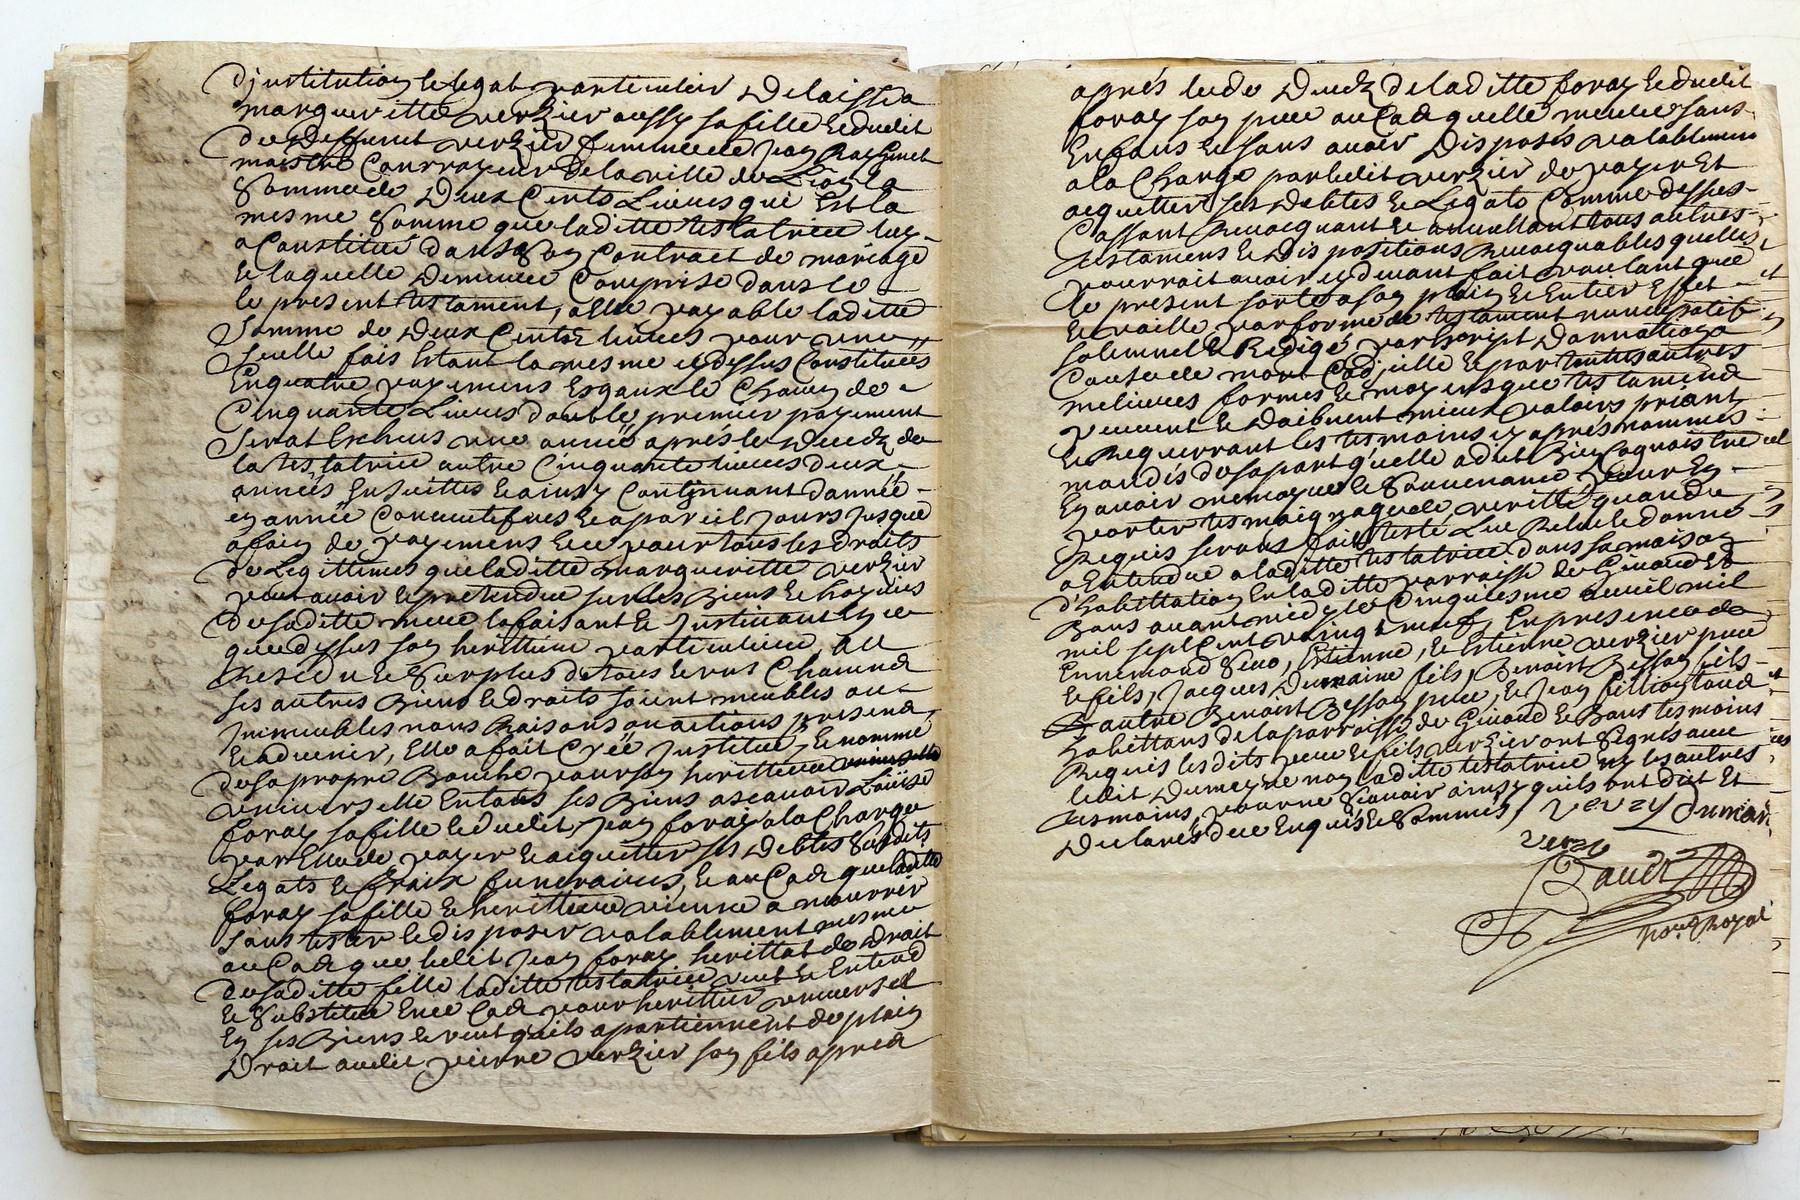 d'jnstitution et legat particulier Delaissea
margueritte verzier aussy sa fille et dudit
deffunct verzier femme de Jean
maistre Courroyeur de la ville de Lion la
somme de Deux Cents Livres qui Est la
mesme somme que laditte testatrice luy
a Constitué dans son Contract de mariage
Et laquelle Demeure Comprise dans le
le present testament, a Elle payable laditte
Somme de Deux Cents livres pour une
seulle fois Estant la mesme cydessus Constituée
En quatre payements Esgaux le Chacun de
Cinquante Livres dont le premier payement
serat Escheus une année aprés le Deceds de
la testatrice autre Cinquante livres deux
années Ensuittes Et ainsy Continuant dannée
en année Consecutifves Et a pareil jours jusque
a fain de payement Et ce pour tous les Droits
de Legittimes que laditte marguerritte verzier
peut avoir Et pretendre sur les Biens Et hoyries
de saditte mere la faisant Et jnstituant En ce
que dessus son herittiere particuliere, Au
Residu Et Surplus de tous Et uns Chacuns
ses autres Biens Et droits soient meubles ou
jmmeubles noms Raisons ou actions presens
Et advenir, Elle a fait Créé jnstitué, Et nommé
de sa propre Bouche pour son herittiere
universelle En tous ses Biens ascavoir Loüise
foray sa fille Et dudit Jean foray a la Charge
par Elle de payer Et acquitter ses Debtes Susdits
Legats Et fraix funeraires, Et au Cas que laditte
foray sa fille Et herittiere vienne a mourrir
sans tester Et disposer valablement mesme
au Cas que ledit Jean foray herittat de Droit
de saditte fille laditte testatrice veut Et Entend
Et Substitue En ce Cas pour herittier universel
En ses Biens Et veut quils apartiennent de plain
Droit audit pierre verzier son fils aprea
aprés le Deceds de laditte foray Et dudit
foray son pere au Cas quelle meure sans
Enfans Et sans avoir Disposés valablement
a la Charge par ledit verzier de payer Et
acquitter ses Debtes Et Legats Comme dessus
Cassant Revocquant Et annullant tous autres
testamens Et dis positions Revocquables quelle
pourrait avoir cy devant fait voulant que
le present sorte a son plain Et Entier Effet
Et vaille par forme de testament nuncupatif
solennel Et Redigé par Escript Donnation a
Cause de mort Codicille Et par touttes autres
melieures formes Et moyens que testamens
peuvent Et doibvent mieux valoirs priant
Et Requerrant les tesmoins cy aprés nommés
mandés de sa part quelle a dit Bien Cognoistre
En avoir memoyre Et Souvenance Pour En
porter tesmoignage de veritté quand
Requis seront fait testé Leu Releu Et donné
a Entendre a laditte testatrice dans sa maison
d'habittation En laditte parroisse de Givord Et
Bans avant midy le Cinquiesme avril mil
mil sept cent vaingt neuf, En presence de
Ennemond Estienne, Et Estienne verzier pere
Et fils, Jacques Dumaine fils, Benoist Besson fils
autre Benoist Besson pere, Et Jean fillion tous
habittans de la parroisse de Givord Et Bans tesmoins
Requis lesdits pere Et fils verzier ont Signés avec
ledit Dumayne non laditte testatrice ny les autres
tesmoins, pour ne Scavoir ainsy quils ont dit Et
Declarés de ce Enquis Et Sommés,
verzy Dumain
verzy
Baudr
Nore Royal